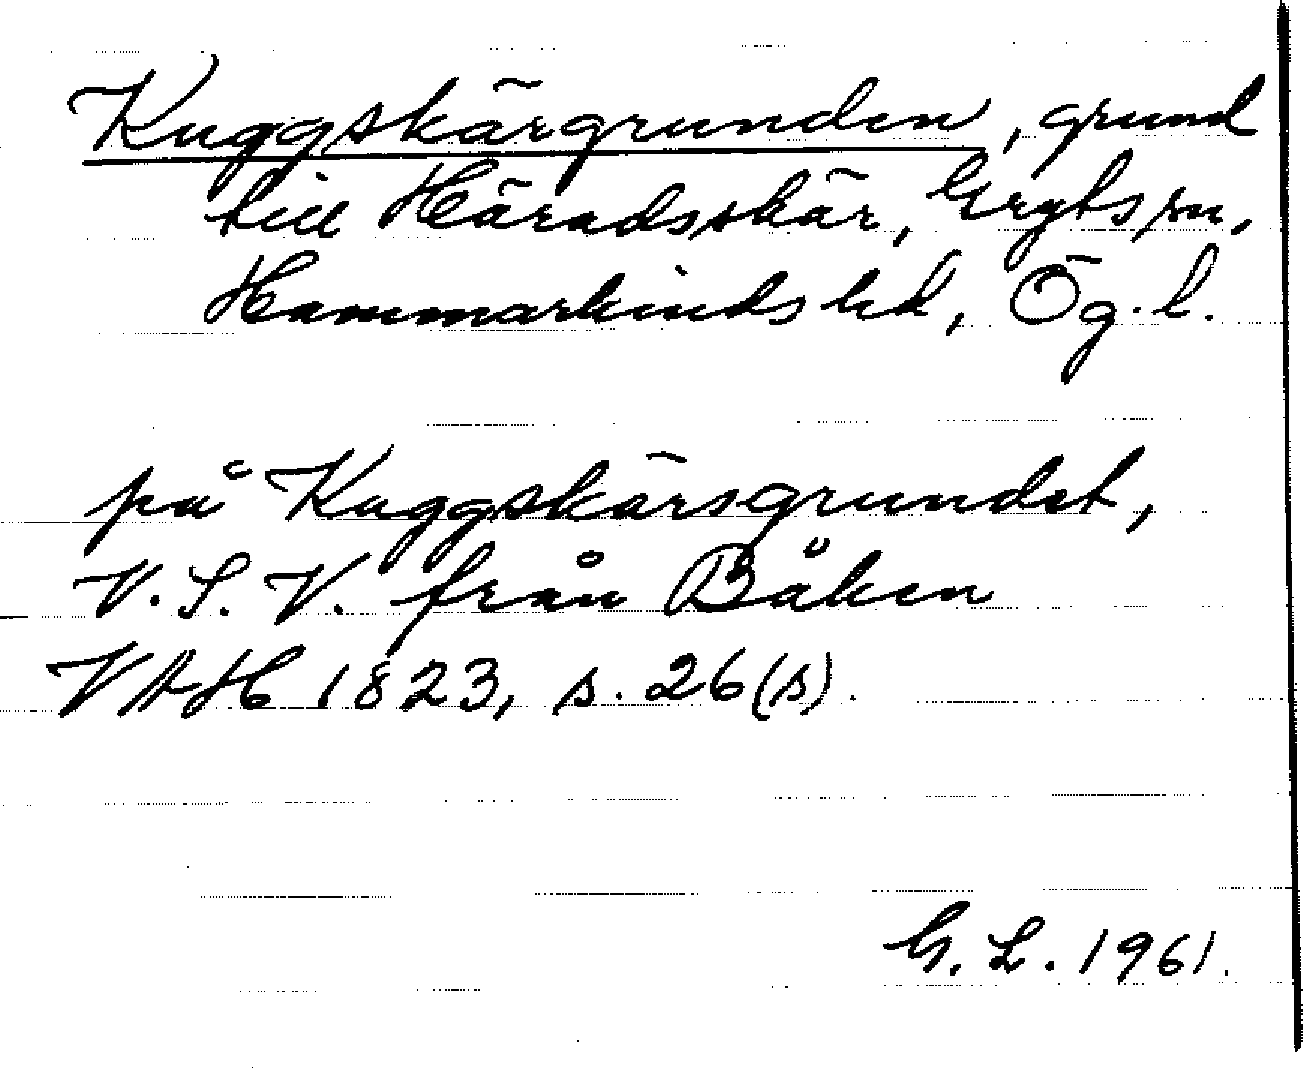 Kuggskärgrunden, grund
till Häradsskär, Gryts sn,
Hammarkinds hd, Ög. l.
på Kuggskärsgrundet,
V. S. V. från Båken
VAH 1823, s. 26(s).
G. L. 1961.